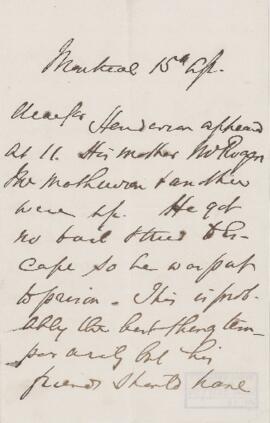 Montreal 15th Ap.
Henderson appeared
at 11. His mother Mr Rogers
Mr Mathewson & another
were up. He got
no bail
so he was put
to prison. This is prob-
ably the best thing tem-
porarily but his
friends should have